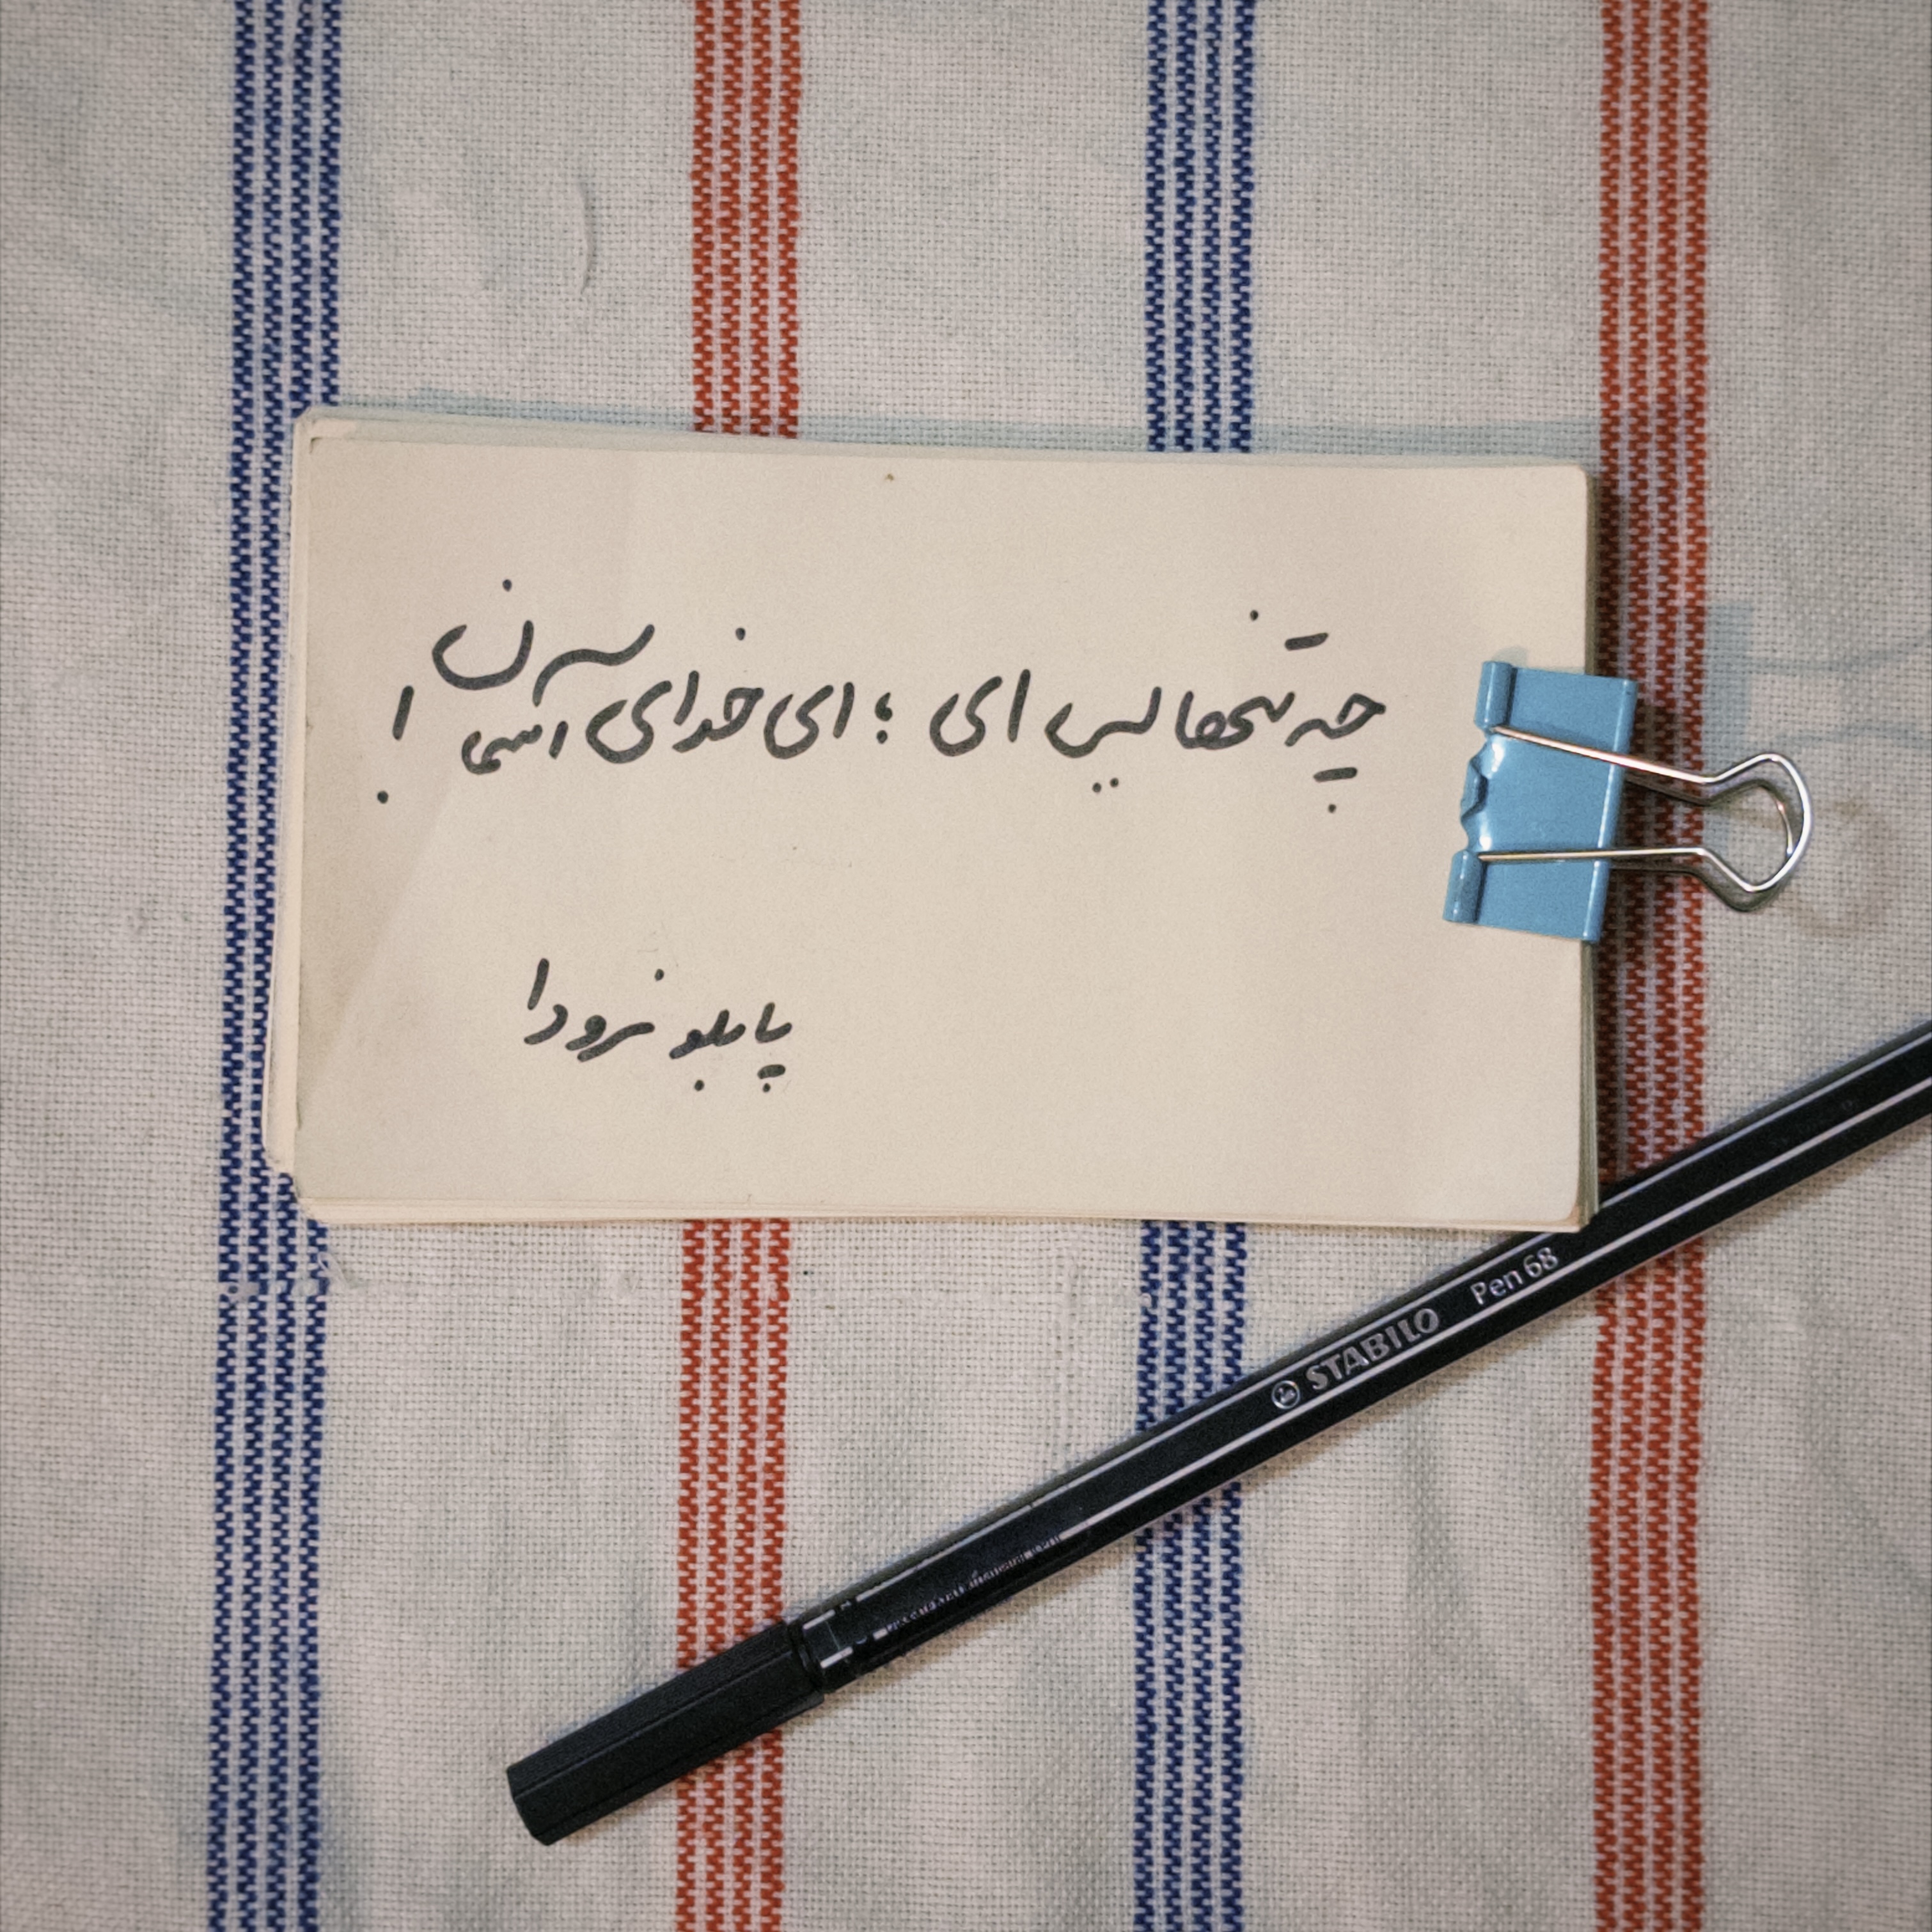 چه تنهایی ای ؛ ای خدای آسمان !
پابلو نرودا
STABILO Pen 68